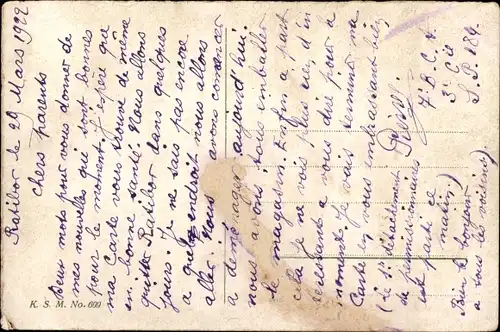 Ratibor le 29 Mars 1922
Chers parents
Deux mots pour vous donner de
mes nouvelles qui sont bonnes
pour le moment. J'espère que
ma carte vous trouve de même
en bonne santé. Nous allons
quitter Ratibor dans quelques
jours. Je ne sais pas encore
a quel endroit nous allons
aller. Nous avons commencer
a demenager aujourd'hui.
nous avons tous emballer
le magasin. Enfin a part
cela je ne vois plus rien d'in
ressant a vous dire pour le
moment. Je vais terminer ma
Carte en vous embrassant bien
(le 1r détachement
de permissionnaires
est parti ce
matin.)
7e B.C.A.
3e Cie
S.P. 189.
Bien le bonjour
aux voisins.)
K. S. M. No. 600